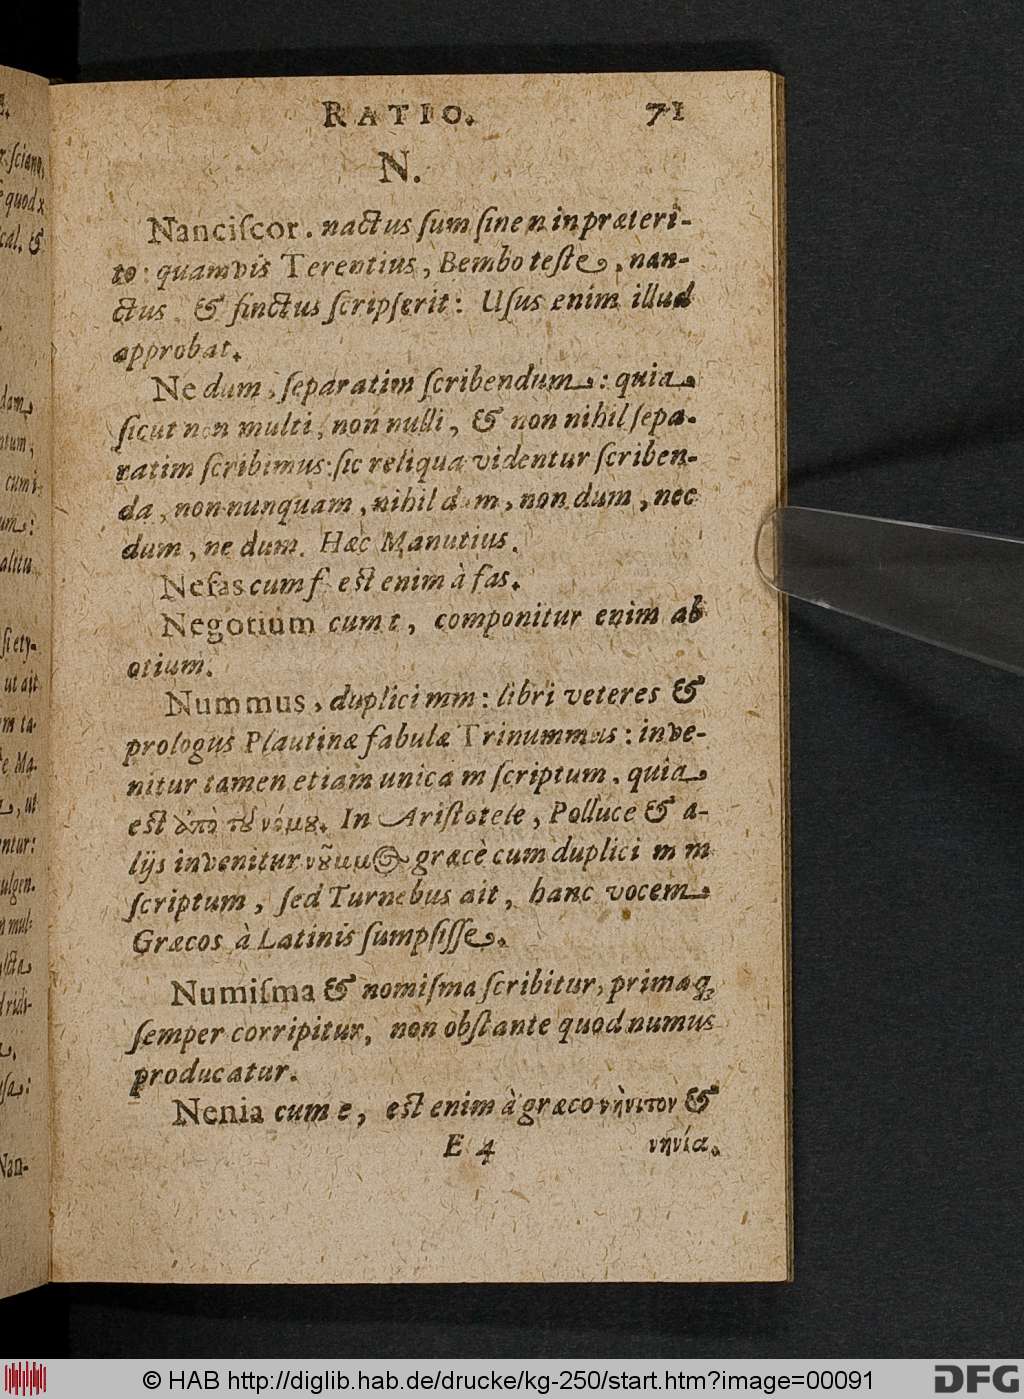 RATIO. 71
N.
Nanciſcor. nactus ſum ſine n in præteri-
to: quamvis Terentius, Bembo teſte, nan-
ctus & finctus ſcripſerit: Uſus enim illud
approbat.
Ne dum, ſeparatim ſcribendum: quia
ſicut non multi, non nulli, & non nihil ſepa-
ratim ſcribimus: ſic reliqua videntur ſcriben-
da, non nunquam, nihil dum, non dum, nec
dum, ne dum. Hæc Manutius.
Nefas cum f est enim à fas.
Negotium cum t, componitur enim ab
otium.
Nummus, duplici mm: libri veteres &
prologus Plautinæ fabulæ Trinummus: inve-
nitur tamen etiam unica m ſcriptum. quia
est ἀπὸ τοῦ νόμου. In Ariſtotele, Polluce & a-
lijs invenitur νοῦμμος græcè cum duplici mm
ſcriptum, ſed Turnebus ait, hanc vocem
Græcos à Latinis ſumpſiſſe.
Numiſma & nomiſma ſcribitur, primaq;
ſemper corripitur, non obſtante quod numus
producatur.
Nenia cum e, est enim à græco νὴνιτον &
E 4 νηνία.
dam
ntum,
cum i
um:
alitu
ſi ety-
ut ait
m ta-
Ma-
, ut
ntur:
ulgen-
n mul-
ridi-
Nan-
© HAB http://diglib.hab.de/drucke/kg-250/start.htm?image=00091
DFG